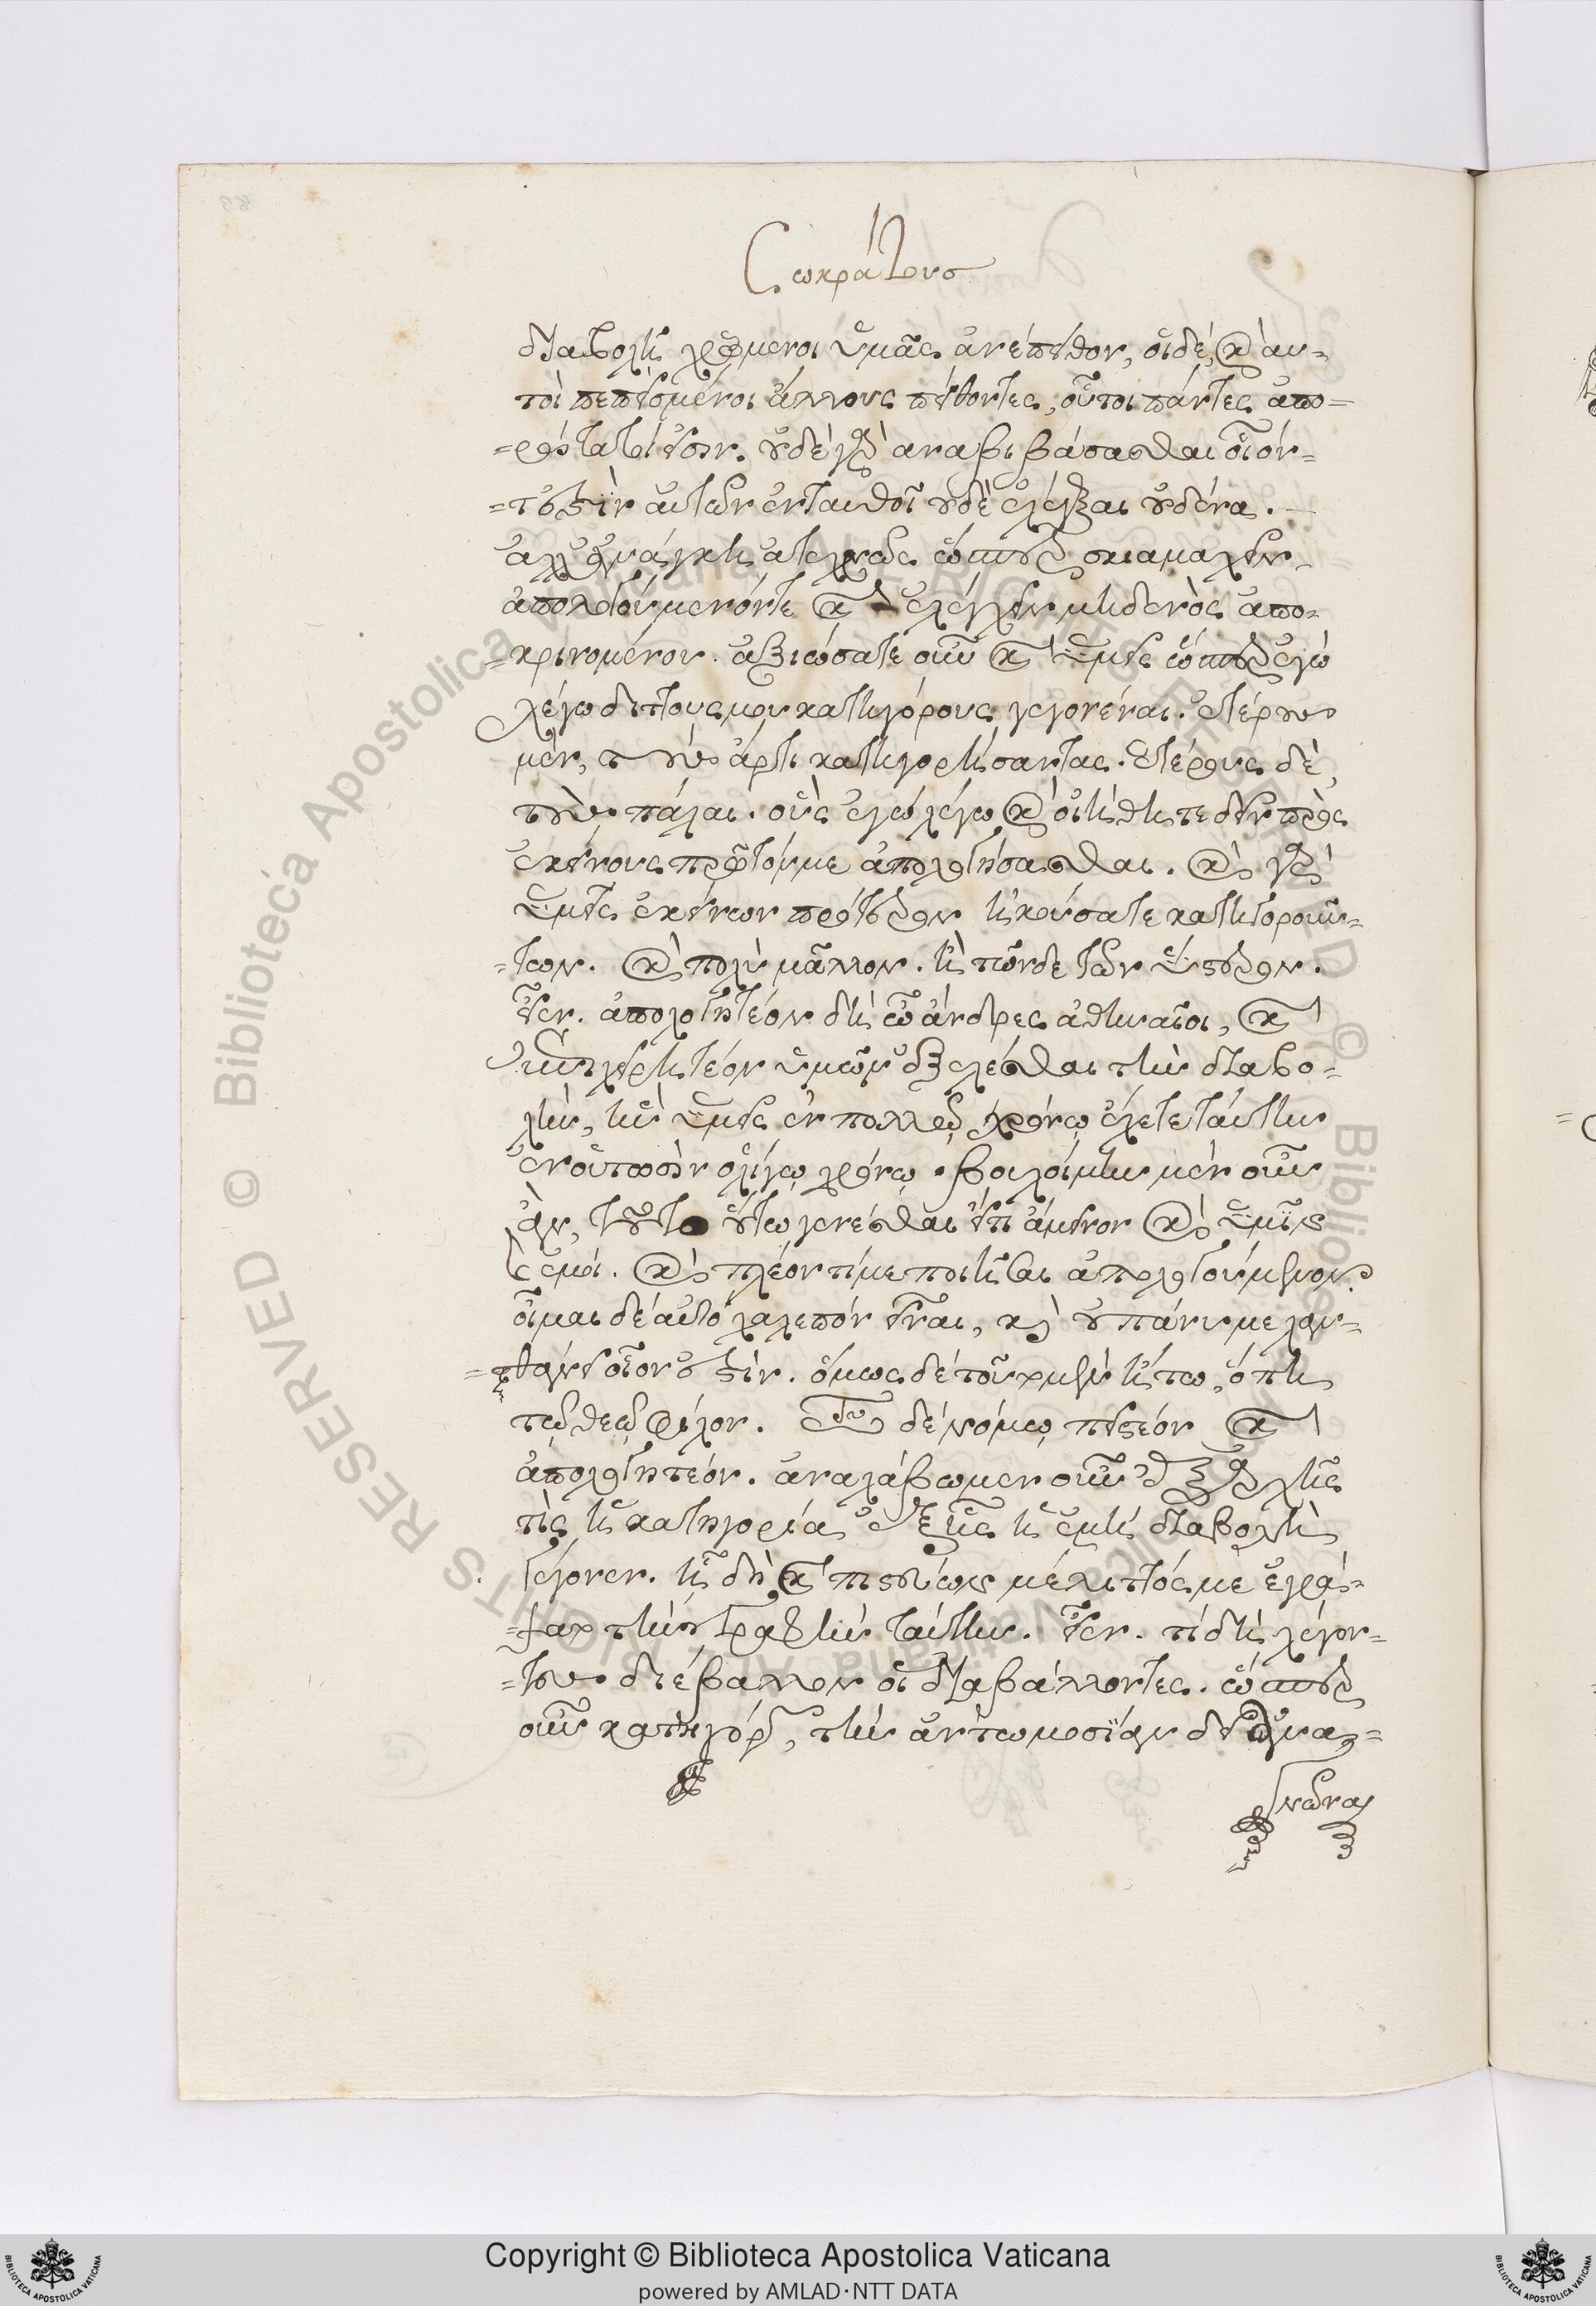 Σωκράτους
διαβολῇ χρώμενοι ὑμᾶς ἀνέπειθον, οἱ δὲ, καὶ αυ-
τοὶ πεπεισμένοι ἄλλους πείθοντες, οὗτοι πάντες ἀπο-
-ρώτατοί εἰσιν. οὐδὲ γὰρ ἀναβιβάσασθαι οἷόν-
-τ' ἐστὶν αὐτῶν ἐνταυθοῖ οὐδὲ ἐλέγξαι οὐδένα.
ἀλλ' ἀνάγκη ἀτεχνῶς ὥσπερ σκιαμαχεῖν
ἀπολογούμενόν τε καὶ ἐλέγχειν μηδενὸς ἀπο-
-κρινομένου. ἀξιώσατε οὖν καὶ ὑμεῖς ὥσπερ ἐγὼ
λέγω διττούς μου κατηγόρους γεγονέναι. ἑτέρους
μὲν, τοὺς ἄρτι κατηγορήσαντας. ἑτέρους δὲ,
τοὺς πάλαι. οὓς ἐγὼ λέγω καὶ οἰήθητε δεῖν πρὸς
ἐκείνους πρῶτόν με ἀπολογήσασθαι. καὶ γὰρ
ὑμεῖς ἐκείνων πρότερον ἠκούσατε κατηγορούν-
-των. καὶ πολὺ μᾶλλον. ἢ τῶνδε τῶν ὕστερον.
εἶεν. ἀπολογητέον δὴ ὦ ἄνδρες ἀθηναῖοι, καὶ
ἐπιχειρητέον ὑμῶν ἐξελέσθαι τὴν διαβο-
λὴν, ἣν ὑμεῖς ἐν πολλῷ χρόνῳ ἔχετε ταύτην
ἐν οὑτωσὶν ὀλίγῳ χρόνῳ. βουλοίμην μὲν οὖν
ἂν, τοῦτο οὕτω γενέσθαι εἴ τι ἄμεινον καὶ ὑμῖν
καὶ ἐμοί. καὶ πλέον τί με ποιῆσαι ἀπολογούμενον.
οἶμαι δὲ αὐτὸ χαλεπὸν εἶναι, καὶ οὐ πάνυ με λαν-
-θάνει οἷόν ἐστιν. ὅμως δὲ τοῦτο μὲν ἴτω, ὅπη
τῷ θεῷ φίλον. τῷ δὲ νόμῳ πειστέον καὶ
ἀπολογητέον. ἀναλάβωμεν οὖν ἐξ ἀρχῆς
τίς ἡ κατηγορία ἐξ ἧς ἡ ἐμὴ διαβολὴ
γέγονεν. ᾗ δὴ καὶ πιστεύων μέλιτός με ἐγρά-
-ψατο τὴν γραφὴν ταύτην. εἶεν. τί δὴ λέγον-
-τες διέβαλλον οἱ διαβάλλοντες. ὥσπερ
οὖν κατηγόρων, τὴν ἀντωμοσίαν δεῖ ἀνα-
γνῶναι